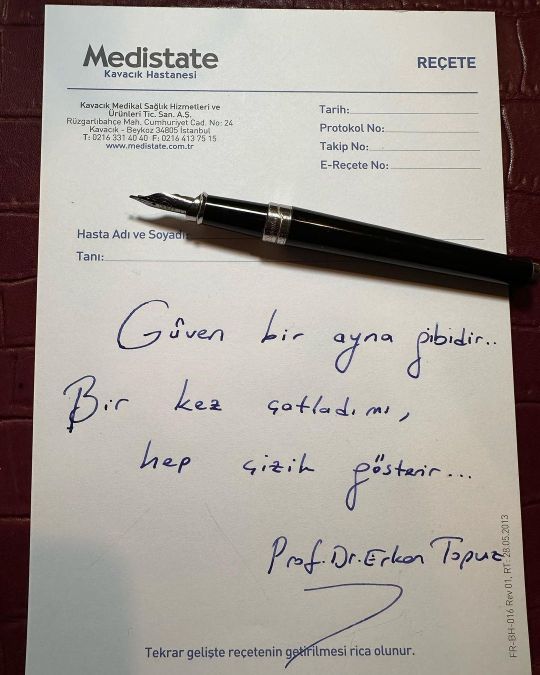 Medistate
Kavacık Hastanesi
REÇETE
Kavacık Medikal Sağlık Hizmetleri ve
Ürünleri Tic. San. A.Ş.
Rüzgarlıbahçe Mah. Cumhuriyet Cad. No: 24
Kavacık - Beykoz 34805 İstanbul
T: 0216 331 40 40 F: 0216 413 75 15
www.medistate.com.tr
Tarih:
Protokol No:
Takip No:
E-Reçete No:
Hasta Adı ve Soyadı:
Tanı:
Güven bir ayna gibidir..
Bir kez çatladımı,
hep çizik gösterir...
Prof. Dr. Erkan Topuz
Tekrar gelişte reçetenin getirilmesi rica olunur.
FR-BH-016 Rev 01, RT: 28.05.2013